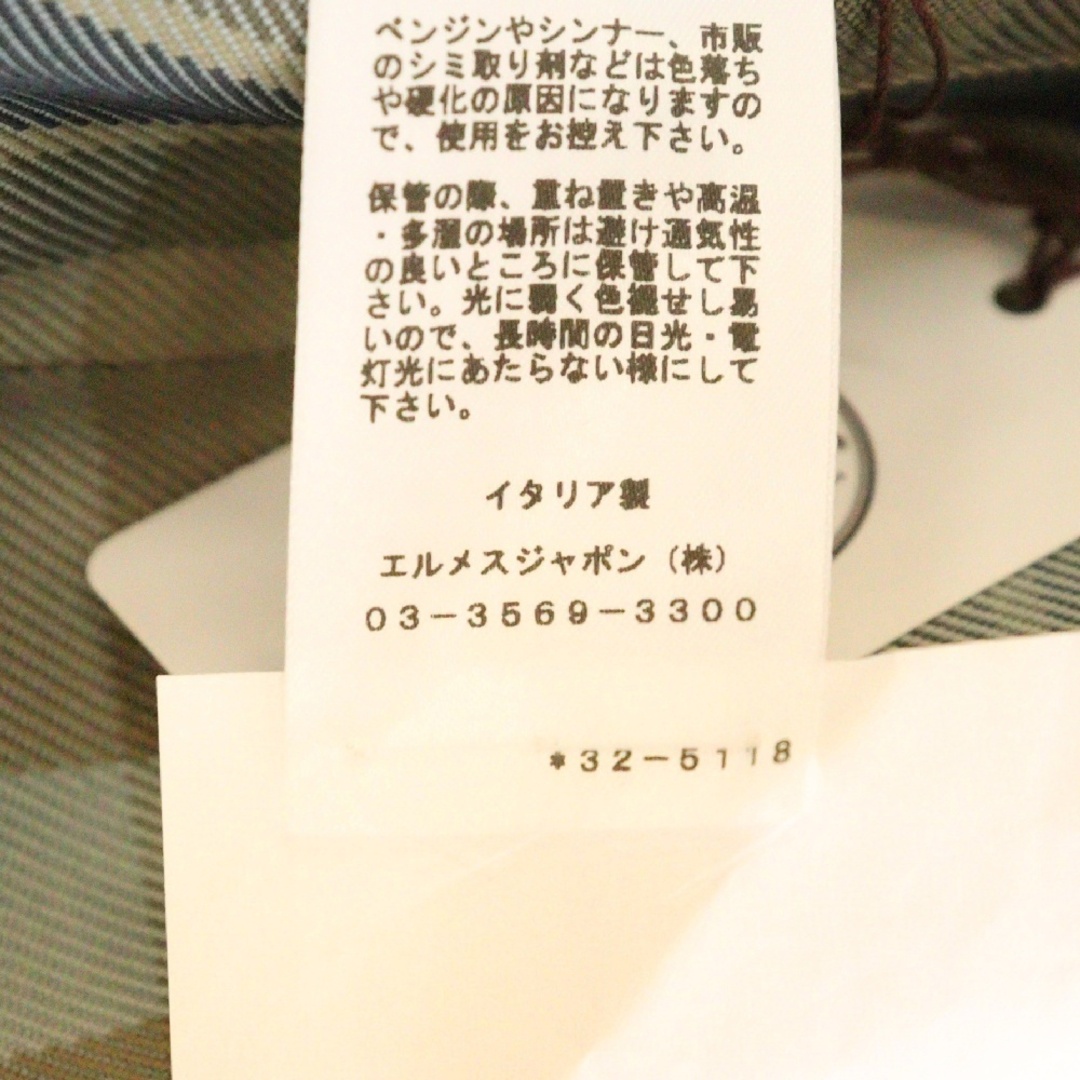 ベンジンやシンナー、市販
のシミ取り剤などは色落ち
や硬化の原因になりますの
で、使用をお控え下さい。
保管の際、重ね置きや高温
・多湿の場所は避け通気性
の良いところに保管して下
さい。光に弱く色褪せし易
いので、長時間の日光・電
灯光にあたらない様にして
下さい。
イタリア製
エルメスジャポン（株）
03－3569－3300
*32－5118